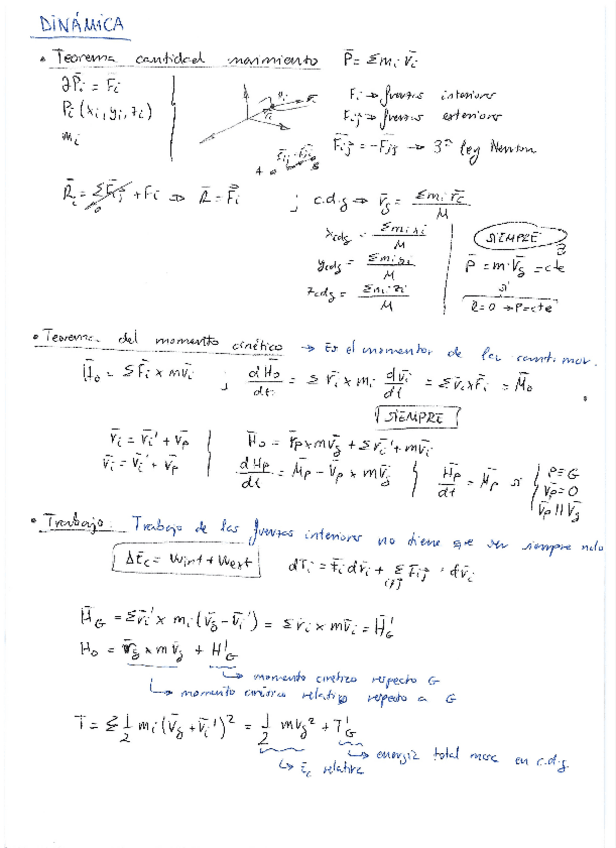 DINÁMICA
• Teorema cantidad movimiento P̄ = Σmᵢ v̄ᵢ
∂P̄ᵢ = F̄ᵢ
Pᵢ (xᵢ, yᵢ, zᵢ)
mᵢ
Fᵢ → fuerzas interiores
Fᵢⱼ → fuerzas exteriores
F̄ᵢⱼ = -F̄ⱼᵢ → 3ª ley Newton
R̄ᵢ = ΣF̄ᵢⱼ + Fᵢ ⇒ R̄ = F̄ᵢ ; c.d.g ⇒ r̄g = Σmᵢ r̄ᵢ / M
x_cdg = Σmᵢ xᵢ / M
y_cdg = Σmᵢ yᵢ / M
z_cdg = Σmᵢ zᵢ / M
SIEMPRE
P̄ = m·V̄g = cte
si
R=0 → P=cte
• Teorema del momento cinético → Es el momentor de la cant. mov.
H̄₀ = Σr̄ᵢ × mv̄ᵢ ; dH̄₀/dt = Σ r̄ᵢ × mᵢ dv̄ᵢ/dt = Σr̄ᵢ×F̄ᵢ = M̄₀
SIEMPRE
r̄ᵢ = r̄ᵢ' + r̄p
v̄ᵢ = v̄ᵢ' + v̄p
H̄₀ = r̄p × mv̄g + Σr̄ᵢ' + mv̄ᵢ
dH̄p/dt = M̄p - V̄p × mv̄g
H̄p/dt = M̄p si
P≡G
V̄p=0
V̄p || V̄g
• Trabajo Trabajo de las fuerzas interiores no tiene que ser siempre nulo
ΔEc = Wint + Wext
dTᵢ = F̄ᵢ dr̄ᵢ + Σ F̄ᵢⱼ · dr̄ᵢ
H̄G = Σr̄ᵢ' × mᵢ(v̄g - v̄ᵢ') = Σr̄ᵢ × mv̄ᵢ = H̄'G
H₀ = r̄g × mv̄g + H'G
→ momento cinético respecto G
→ momento cinético relativo respecto a G
T = Σ ½ mᵢ(v̄g + v̄ᵢ')² = ½ mvg² + T'G
→ energía total masa en c.d.g.
→ Ec relativa